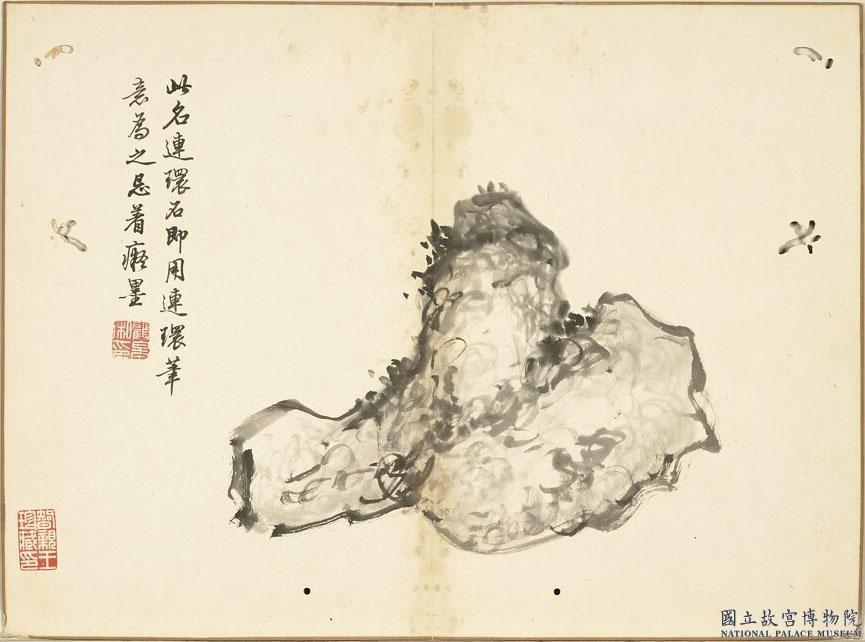 此名連環石即用連環筆
意為之忌着癡墨
智親王
珍藏印
國立故宮博物院
NATIONAL PALACE MUSEUM